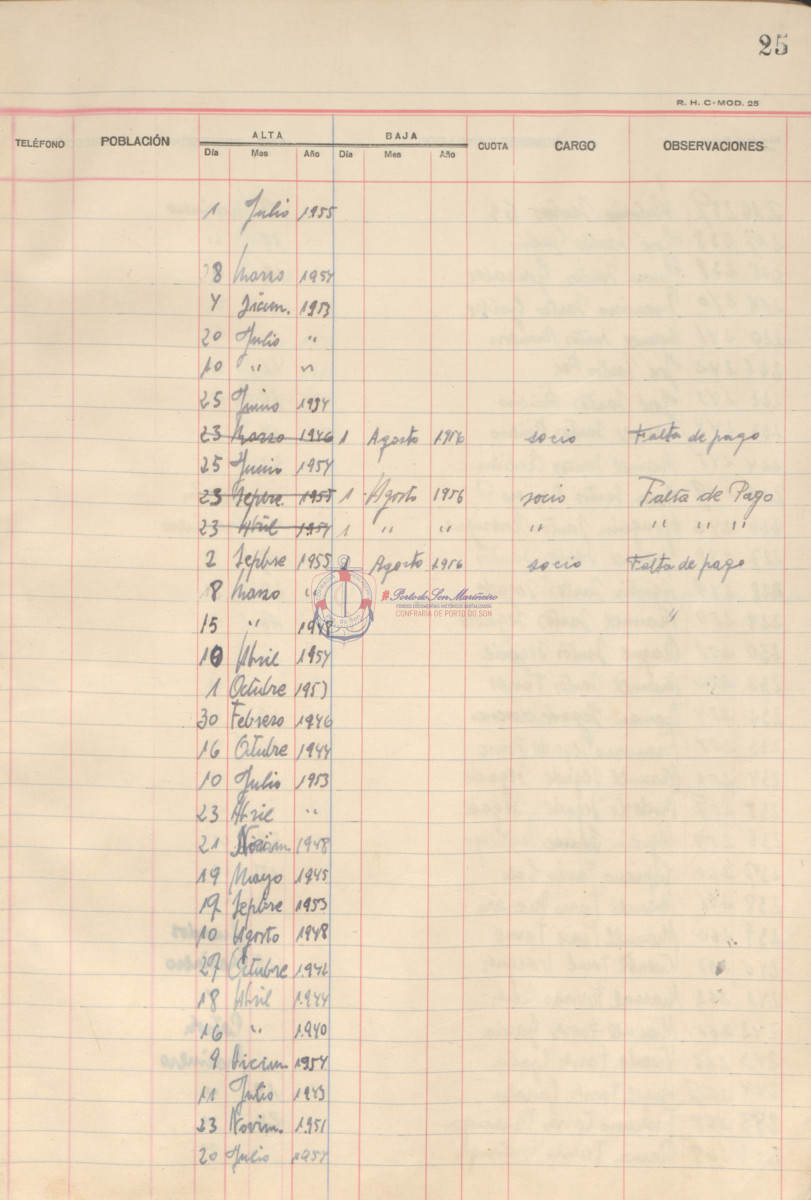 25
R. H. C-MOD. 25
TELÉFONO POBLACIÓN ALTA BAJA CUOTA CARGO OBSERVACIONES
Día Mes Año Día Mes Año
1 Julio 1955
28 Marzo 1954
4 Dicem. 1953
20 Julio "
10 " "
25 Junio 1934
23 Marzo 1946 1 Agosto 1956 socio Falta de pago
25 Junio 1954
23 Sepbre. 1955 1 Agosto 1956 socio Falta de Pago
23 Abril 1954 1 " " " " " "
2 Sepbre 1955 1 Agosto 1956 socio Falta de pago
8 Marzo "
#Porto do Son Mariñeiro
FONDOS DOCUMENTAIS HISTÓRICOS DIXITALIZADOS
CONFRARÍA DE PORTO DO SON
15 " 1948 "
10 Abril 1954
1 Octubre 1953
30 Febrero 1946
16 Octubre 1944
10 Julio 1953
23 Abril "
21 Novim. 1948
19 Mayo 1945
19 Sepbre 1953
10 Agosto 1948
27 Octubre 1942
18 Abril 1944
16 " 1940
9 Dicem. 1954
11 Julio 1943
23 Novim. 1951
20 Julio 1954